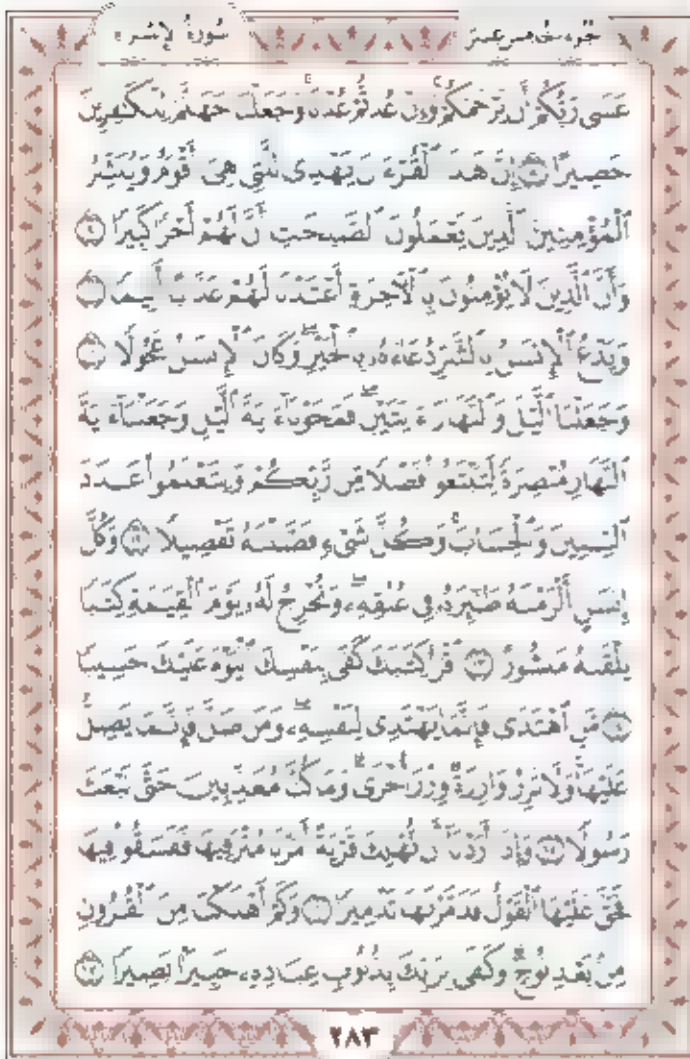 سُورَةُ الإِسْرَاءِ
الجُزْءُ الخَامِسَ عَشَرَ
عَسَىٰ رَبُّكُمْ أَن يَرْحَمَكُمْ ۚ وَإِنْ عُدتُّمْ عُدْنَا ۘ وَجَعَلْنَا جَهَنَّمَ لِلْكَٰفِرِينَ
حَصِيرًا ۝٨ إِنَّ هَٰذَا ٱلْقُرْءَانَ يَهْدِى لِلَّتِى هِىَ أَقْوَمُ وَيُبَشِّرُ
ٱلْمُؤْمِنِينَ ٱلَّذِينَ يَعْمَلُونَ ٱلصَّٰلِحَٰتِ أَنَّ لَهُمْ أَجْرًا كَبِيرًا ۝٩
وَأَنَّ ٱلَّذِينَ لَا يُؤْمِنُونَ بِٱلْءَاخِرَةِ أَعْتَدْنَا لَهُمْ عَذَابًا أَلِيمًا ۝١٠
وَيَدْعُ ٱلْإِنسَٰنُ بِٱلشَّرِّ دُعَآءَهُۥ بِٱلْخَيْرِ ۖ وَكَانَ ٱلْإِنسَٰنُ عَجُولًا ۝١١
وَجَعَلْنَا ٱلَّيْلَ وَٱلنَّهَارَ ءَايَتَيْنِ ۖ فَمَحَوْنَآ ءَايَةَ ٱلَّيْلِ وَجَعَلْنَآ ءَايَةَ
ٱلنَّهَارِ مُبْصِرَةً لِّتَبْتَغُوا۟ فَضْلًا مِّن رَّبِّكُمْ وَلِتَعْلَمُوا۟ عَدَدَ
ٱلسِّنِينَ وَٱلْحِسَابَ ۚ وَكُلَّ شَىْءٍ فَصَّلْنَٰهُ تَفْصِيلًا ۝١٢ وَكُلَّ
إِنسَٰنٍ أَلْزَمْنَٰهُ طَٰٓئِرَهُۥ فِى عُنُقِهِۦ ۖ وَنُخْرِجُ لَهُۥ يَوْمَ ٱلْقِيَٰمَةِ كِتَٰبًا
يَلْقَىٰهُ مَنشُورًا ۝١٣ ٱقْرَأْ كِتَٰبَكَ كَفَىٰ بِنَفْسِكَ ٱلْيَوْمَ عَلَيْكَ حَسِيبًا
۝١٤ مَّنِ ٱهْتَدَىٰ فَإِنَّمَا يَهْتَدِى لِنَفْسِهِۦ ۖ وَمَن ضَلَّ فَإِنَّمَا يَضِلُّ
عَلَيْهَا ۚ وَلَا تَزِرُ وَازِرَةٌ وِزْرَ أُخْرَىٰ ۗ وَمَا كُنَّا مُعَذِّبِينَ حَتَّىٰ نَبْعَثَ
رَسُولًا ۝١٥ وَإِذَآ أَرَدْنَآ أَن نُّهْلِكَ قَرْيَةً أَمَرْنَا مُتْرَفِيهَا فَفَسَقُوا۟ فِيهَا
فَحَقَّ عَلَيْهَا ٱلْقَوْلُ فَدَمَّرْنَٰهَا تَدْمِيرًا ۝١٦ وَكَمْ أَهْلَكْنَا مِنَ ٱلْقُرُونِ
مِنۢ بَعْدِ نُوحٍ ۗ وَكَفَىٰ بِرَبِّكَ بِذُنُوبِ عِبَادِهِۦ خَبِيرًۢا بَصِيرًا ۝١٧
٢٨٣